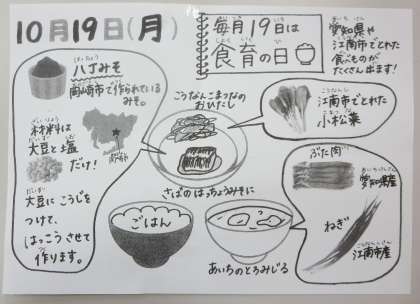 10月19日(月)
毎月19日は
食育の日
愛知県や
江南市でとれた
食べものが
たくさん出ます!
八丁みそ
岡崎市で作られている
みそ。
材料は
大豆と塩
だけ!
岡崎市
大豆にこうじを
つけて、
はっこうさせて
作ります。
こうなんこまつなの
おひたし
さばのはっちょうみそに
江南市でとれた
小松菜
ごはん
あいちのとろみじる
ぶた肉
愛知県産
ねぎ
江南市産